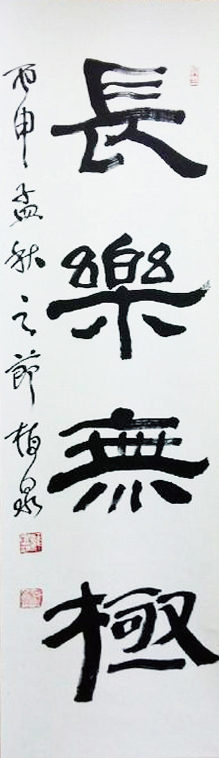 長樂無極
丙申孟秋之節柏泉